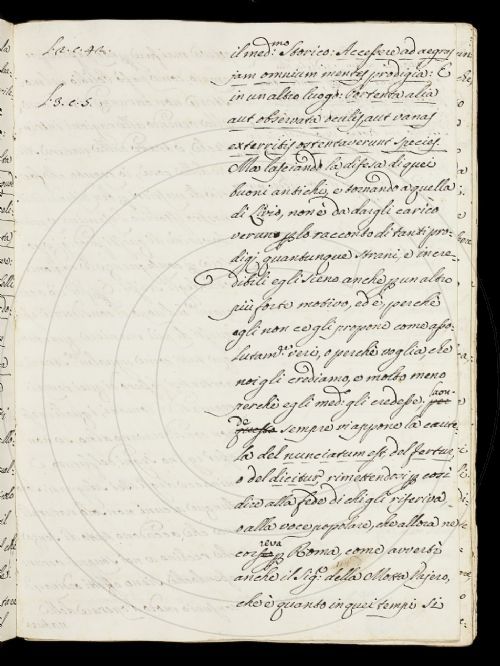 L. 2. c. 42.
L. 3. c. 5.
il med:mo Storico: Accessere ad aegras
jam omnium mentes prodigia: E
in un altro luogo: Portenta alia
aut observata oculis, aut vanas
exterritis ostentaverunt species
Ma lasciando la difesa di quei
buoni antichi, e tornando a quella
di Livio, non è da dargli carico
veruno p lo racconto di tanti pro-
digi, quantunque strani, e incre-
dibili egli sieno anche p un altro
più forte motivo, ed è, perchè
egli non ce gli propone come asso-
lutam.te veri, o perchè voglia che
noi gli crediamo, e molto meno
perchè egli med: gli credesse.
de sempre vi appone la caute
la del nunciatum est, del fertur,
o del dicitur, rimettendosi p così
dire alla fede di chi gli riferiva
o alla voce popolare, che allora ne
correva p Roma, come avvertì
anche il Sig.r della Motta Vajero,
che è quanto in quei tempi si